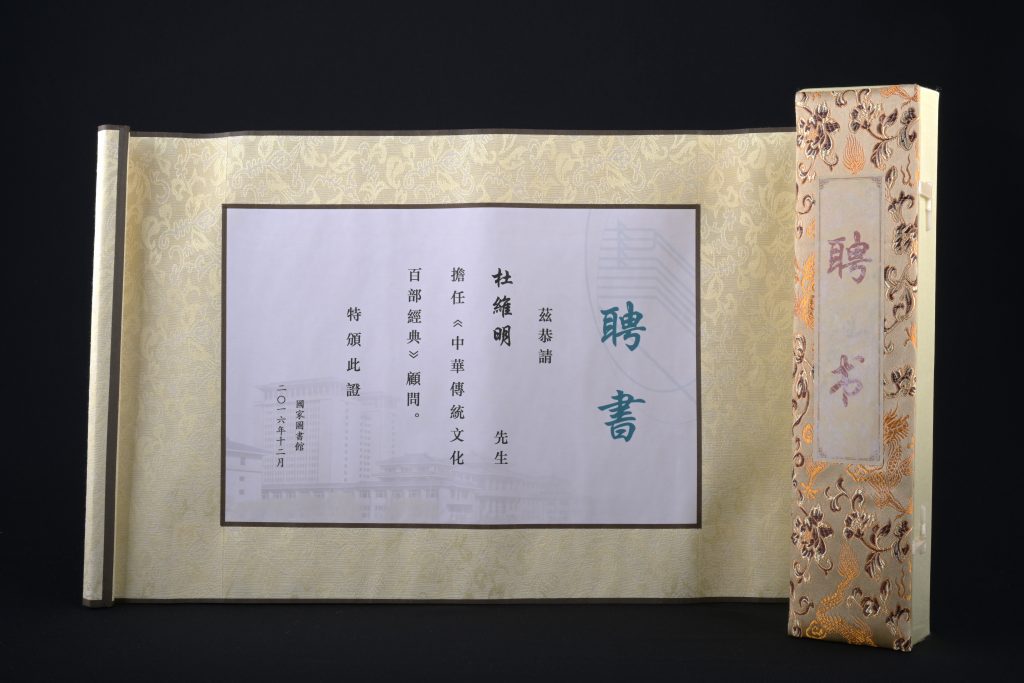 聘書
茲恭請
杜維明 先生
擔任《中華傳統文化
百部經典》顧問。
特頒此證
國家圖書館
二〇一六年十二月
聘书